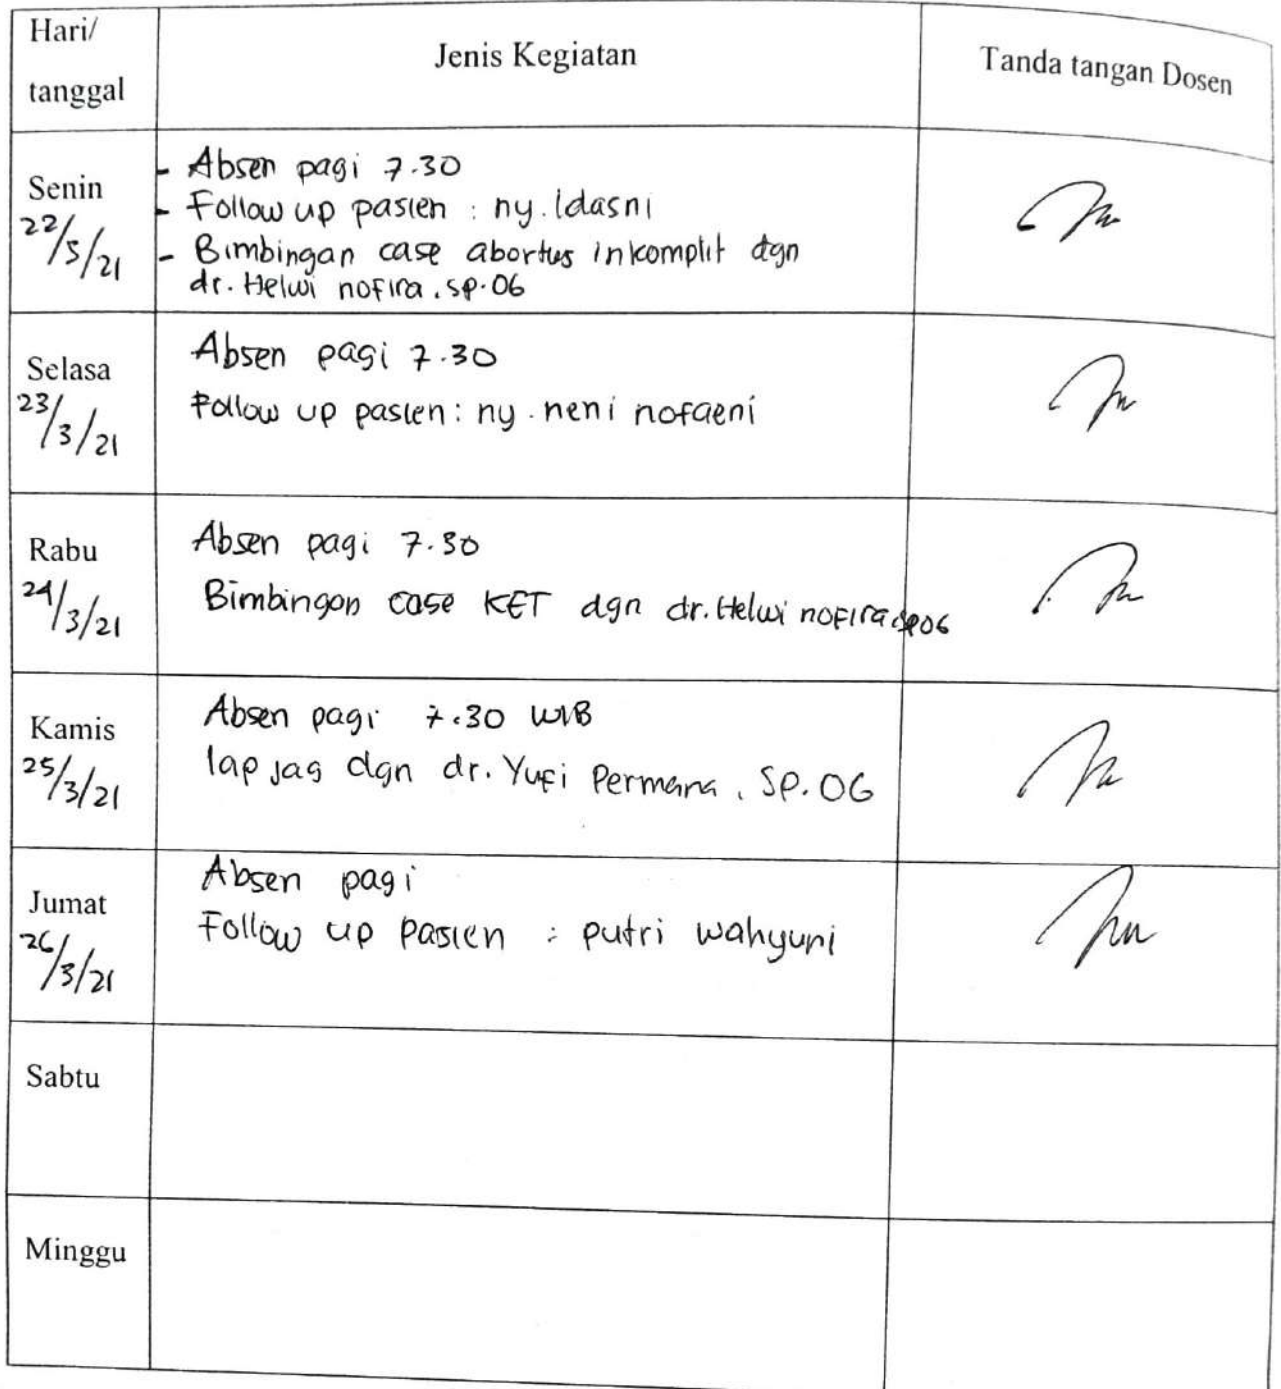 Hari/
tanggal
Jenis Kegiatan
Tanda tangan Dosen
Senin
22/3/21
- Absen pagi 7.30
- Follow up pasien : ny. Idasni
- Bimbingan case abortus inkomplit dgn
dr. Helwi nofira. sp.OG
Selasa
23/3/21
Absen pagi 7.30
Follow up pasien : ny. neni nofaeni
Rabu
24/3/21
Absen pagi 7.30
Bimbingan case KET dgn dr. Helwi nofira spOG
Kamis
25/3/21
Absen pagi 7.30 WIB
lap jag dgn dr. Yufi Permana, SP.OG
Jumat
26/3/21
Absen pagi
Follow up pasien : putri wahyuni
Sabtu
Minggu